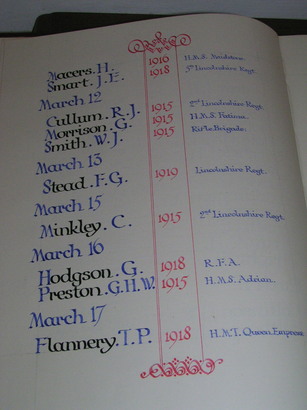 Macers. H. 1916 H.M.S.
Smart. J. E. 1918 5th Lincolnshire Regt.
March 12
Cullum. R. J. 1915 2nd Lincolnshire Regt.
Morrison. G. 1915 H.M.S.
Smith. W. J. 1915 Rifle Brigade.
March 13
Stead. F. G. 1919 Lincolnshire Regt.
March 15
Minkley. C. 1915 2nd Lincolnshire Regt.
March 16
Hodgson. G. 1918 R. F. A.
Preston. G. H. W. 1915 H.M.S.
March 17
Flannery. T. P. 1918 H.M.T. Queen Empress